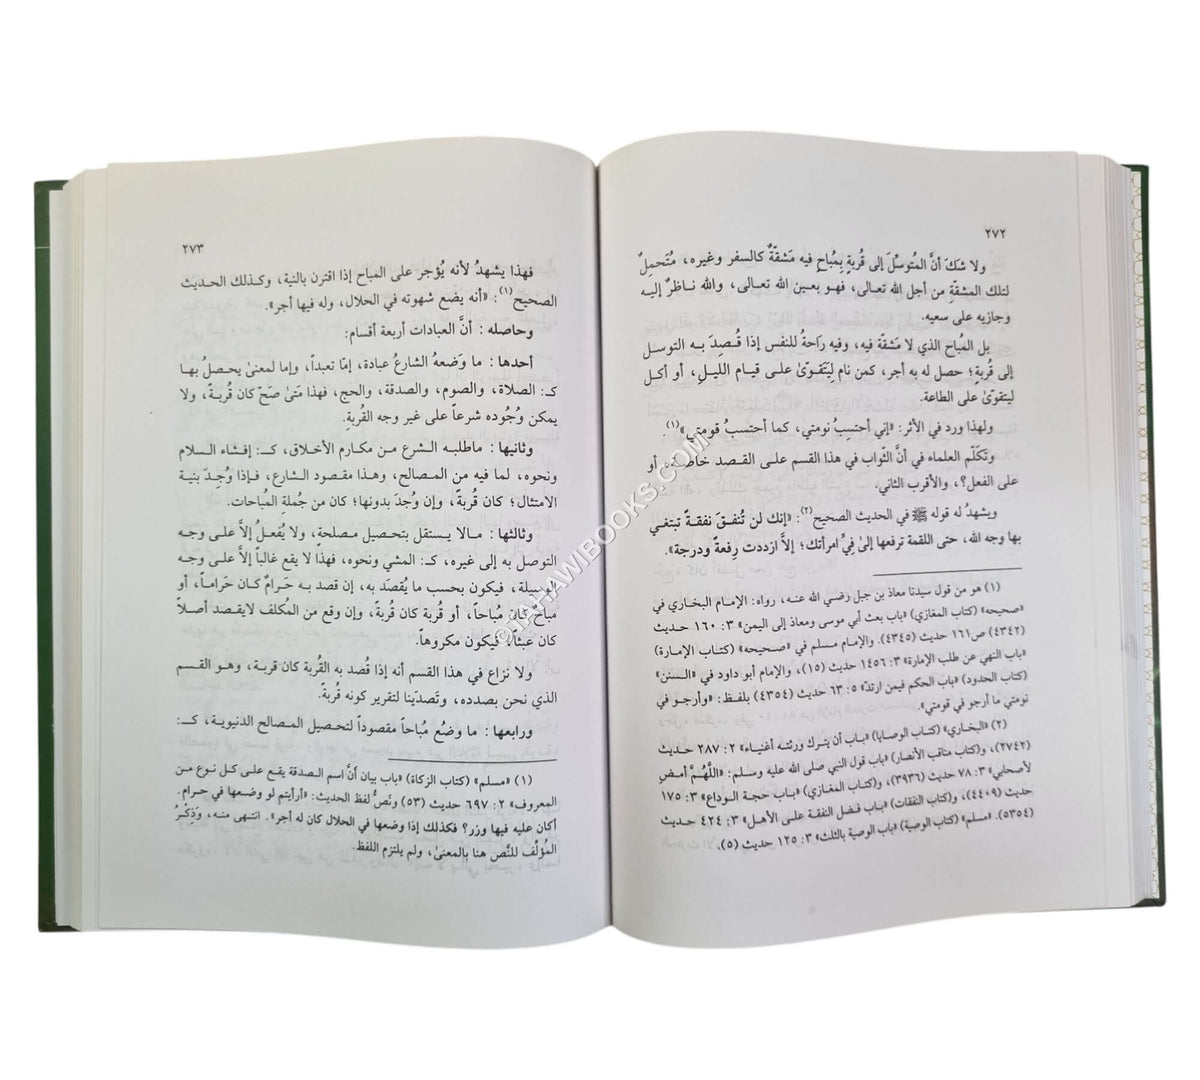 ٢٧٢
ولا شكَ أنَّ المُتوسِّلَ إلى قُربةٍ بِمُباحٍ فيه مَشقّةٌ كالسفر وغيره، مُتَحمِلٌ
لتلك المشقّةِ من أجل الله تعالى، فهو بعين الله تعالى، والله ناظرٌ إليه
وجازيه على سعيه.
بل المُباح الذي لا مَشقّة فيه، وفيه راحةُ للنفس إذا قُصِدَ به التوسل
إلى قُربةٍ؛ حصل له به أجر، كمن نام لِيَتقوىٰ على قيام الليلِ، أو أكل
ليتقوىٰ على الطاعة.
ولهذا ورد في الأثر: «إني أحتسِبُ نومتي، كما أحتسبُ قومتي»(١).
وتكَلّم العلماء في أنَّ الثَّواب في هذا القسم على القصد خاصة، أو
على الفعل؟، والأقرب الثاني.
ويشهدُ له قوله ﷺ في الحديث الصحيح(٢): «إنك لن تُنفِقَ نفقةً تبتغي
بها وجه الله، حتى اللقمة ترفعها إلىٰ فِيِّ امرأتك؛ إلَّا ازددت رِفعةً ودرجة».
(١) هو من قول سيدنا معاذ بن جبل رضي الله عنه، رواه: الإمام البخاري في
«صحيحه» (كتاب المغازي) «باب بعث أبي موسى ومعاذ إلى اليمن» ٣: ١٦٠ حديث
(٤٣٤٢) ص١٦١ حديث (٤٣٤٥). والإمام مسلم في «صحيحه» (كتاب الإمارة)
«باب النهي عن طلب الإمارة» ٣: ١٤٥٦ حديث (١٥)، والإمام أبو داود في «السنن»
(كتاب الحدود) «باب الحكم فيمن ارتدّ» ٥: ٦٣ حديث (٤٣٥٤) بلفظ: «وأرجو في
نومتي ما أرجو في قومتي».
(٢) «البخاري» (كتاب الوصايا) «باب أن يترك ورثته أغنياء» ٢: ٢٨٧ حديث
(٢٧٤٢)، و(كتاب مناقب الأنصار) «باب قول النبي صلى الله عليه وسلم: «اللَّهُمَّ أمضِ
لأصحابي» ٣: ٧٨ حديث (٣٩٣٦)، و(كتاب المغازي) «باب حجة الوداع» ٣: ١٧٥
حديث (٤٤٠٩)، و(كتاب النفقات) «باب فضل النفقة على الأهل» ٣: ٤٢٤ حديث
(٥٣٥٤). «مسلم» (كتاب الوصية) «باب الوصية بالثلث» ٣: ١٢٥ حديث (٥).
٢٧٣
فهذا يشهدُ لأنه يُؤجر على المباح إذا اقترن بالنية، وكذلك الحديث
الصحيح(١): «أنه يضع شهوته في الحلال، وله فيها أجر».
وحاصله : أنَّ العبادات أربعة أقسام:
أحدها : ما وَضعهُ الشارعُ عبادة، إمّا تعبداً، وإما لمعنىً يحصلُ بها
كـ: الصلاة، والصوم، والصدقة، والحج، فهذا متىٰ صَحّ كان قُربةً، ولا
يمكن وُجُوده شرعاً على غير وجه القُربة.
وثانيها : ماطلبه الشرع من مكارم الأخلاق، كـ: إفشاء السلام
ونحوه، لما فيه من المصالح، وهذا مقصود الشارع، فإذا وُجِدَ بنية
الامتثال؛ كان قُربةً، وإن وُجدَ بدونها؛ كان من جُملةِ المُباحات.
وثالثها : مالا يستقل بتحصيل مصلحةٍ، ولا يُفعلُ إلَّا على وجه
التوصل به إلى غيره، كـ: المشي ونحوه، فهذا لا يقع غالباً إلَّا على وجه
الوسيلة، فيكون بحسب ما يُقصَد به، إن قصد به حَرام كان حَراماً، أو
مباح كان مُباحاً، أو قُربة كان قُربةً، وإن وقع من المُكلف لايقصد أصلاً
كان عبثاً، فيكون مكروهاً.
ولا نزاع في هذا القسم أنه إذا قُصد به القُربة كان قربة، وهو القسم
الذي نحن بصدده، وتَصدّينا لتقرير كونه قُربةً.
ورابعها : ما وضُع مُباحاً مقصوداً لتحصيل المصالح الدنيوية، كـ:
(١) «مسلم» (كتاب الزكاة) «باب بيان أنَّ اسم الصدقة يقع على كل نوع من
المعروف» ٢: ٦٩٧ حديث (٥٣) ونَصُّ لفظ الحديث: «أرأيتم لو وضعها في حرام.
أكان عليه فيها وزر؟ فكذلك إذا وضعها في الحلال كان له أجر». انتهى منه، وَذِكْرُ
المُؤلِّف للنَّص هنا بالمعنىٰ، ولم يلتزم اللفظ.
©TAHAWIBOOKS.COM